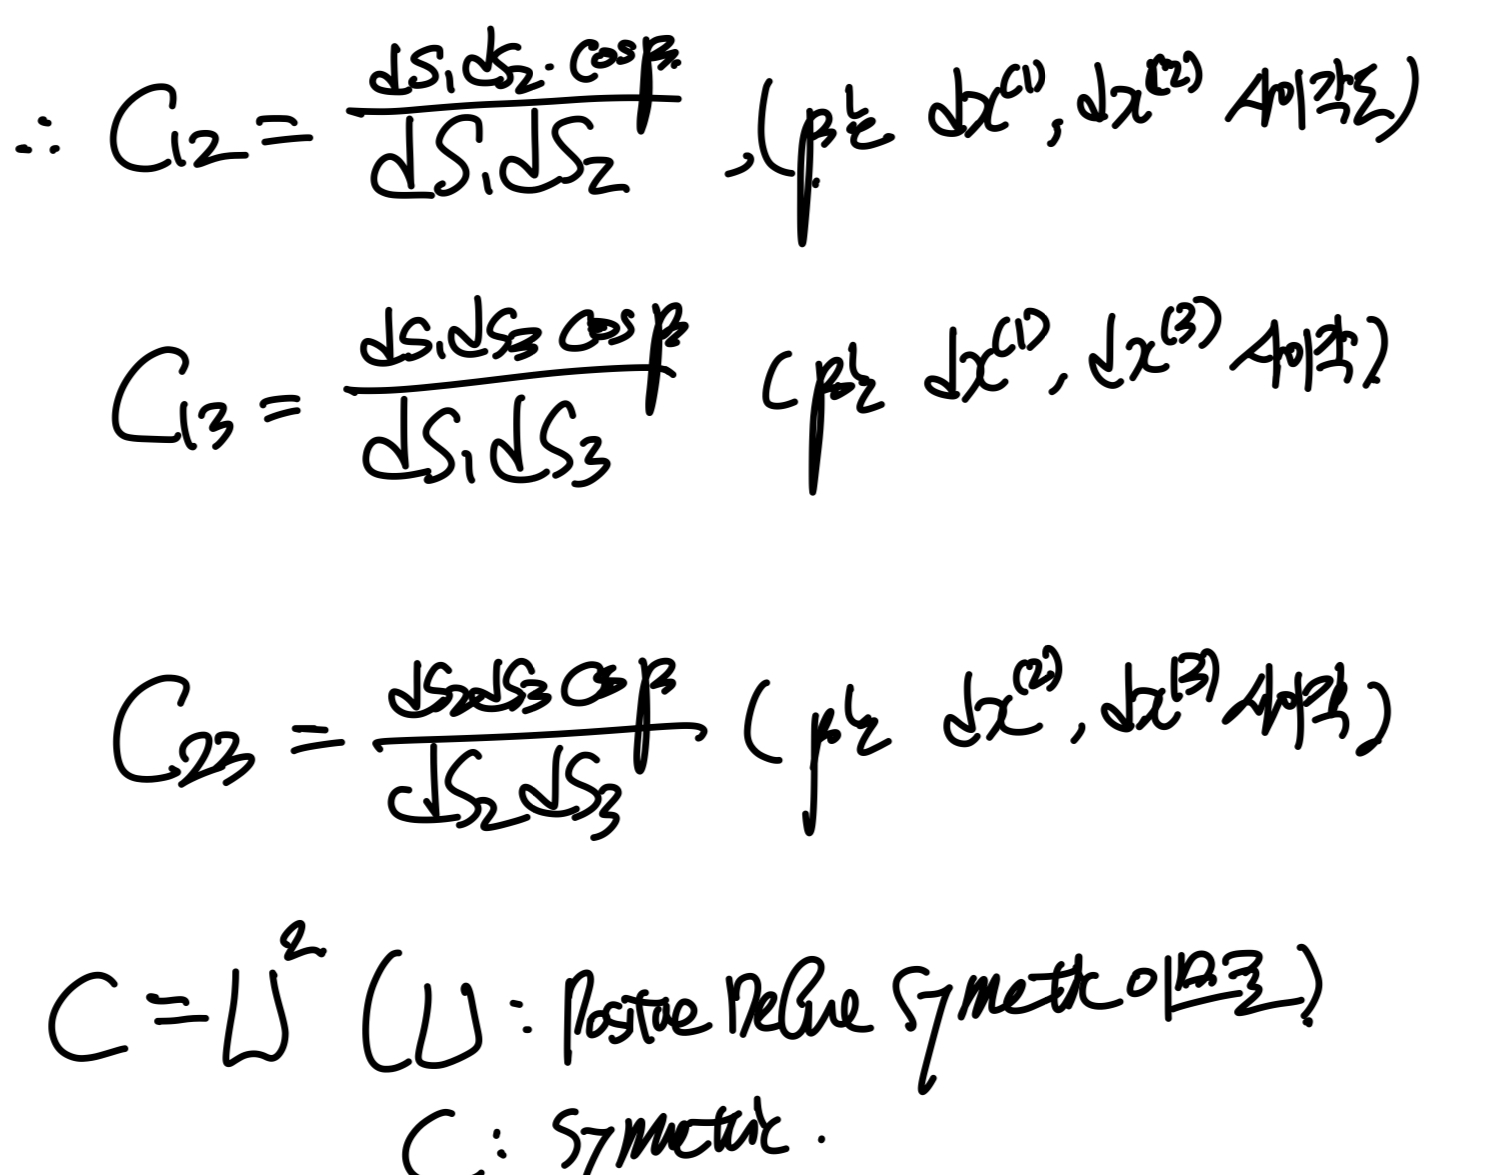 ∴ C₁₂ = ds₁ds₂·cosβ / dS₁dS₂ , (β는 dx⁽¹⁾, dx⁽²⁾ 사이각도)
C₁₃ = ds₁ds₃ cosβ / dS₁dS₃ (β는 dx⁽¹⁾, dx⁽³⁾ 사이각)
C₂₃ = ds₂ds₃ cosβ / dS₂dS₃ (β는 dx⁽²⁾, dx⁽³⁾ 사이각)
C = U² (U : Positive Define Symetric 이므로)
C : Symetric.